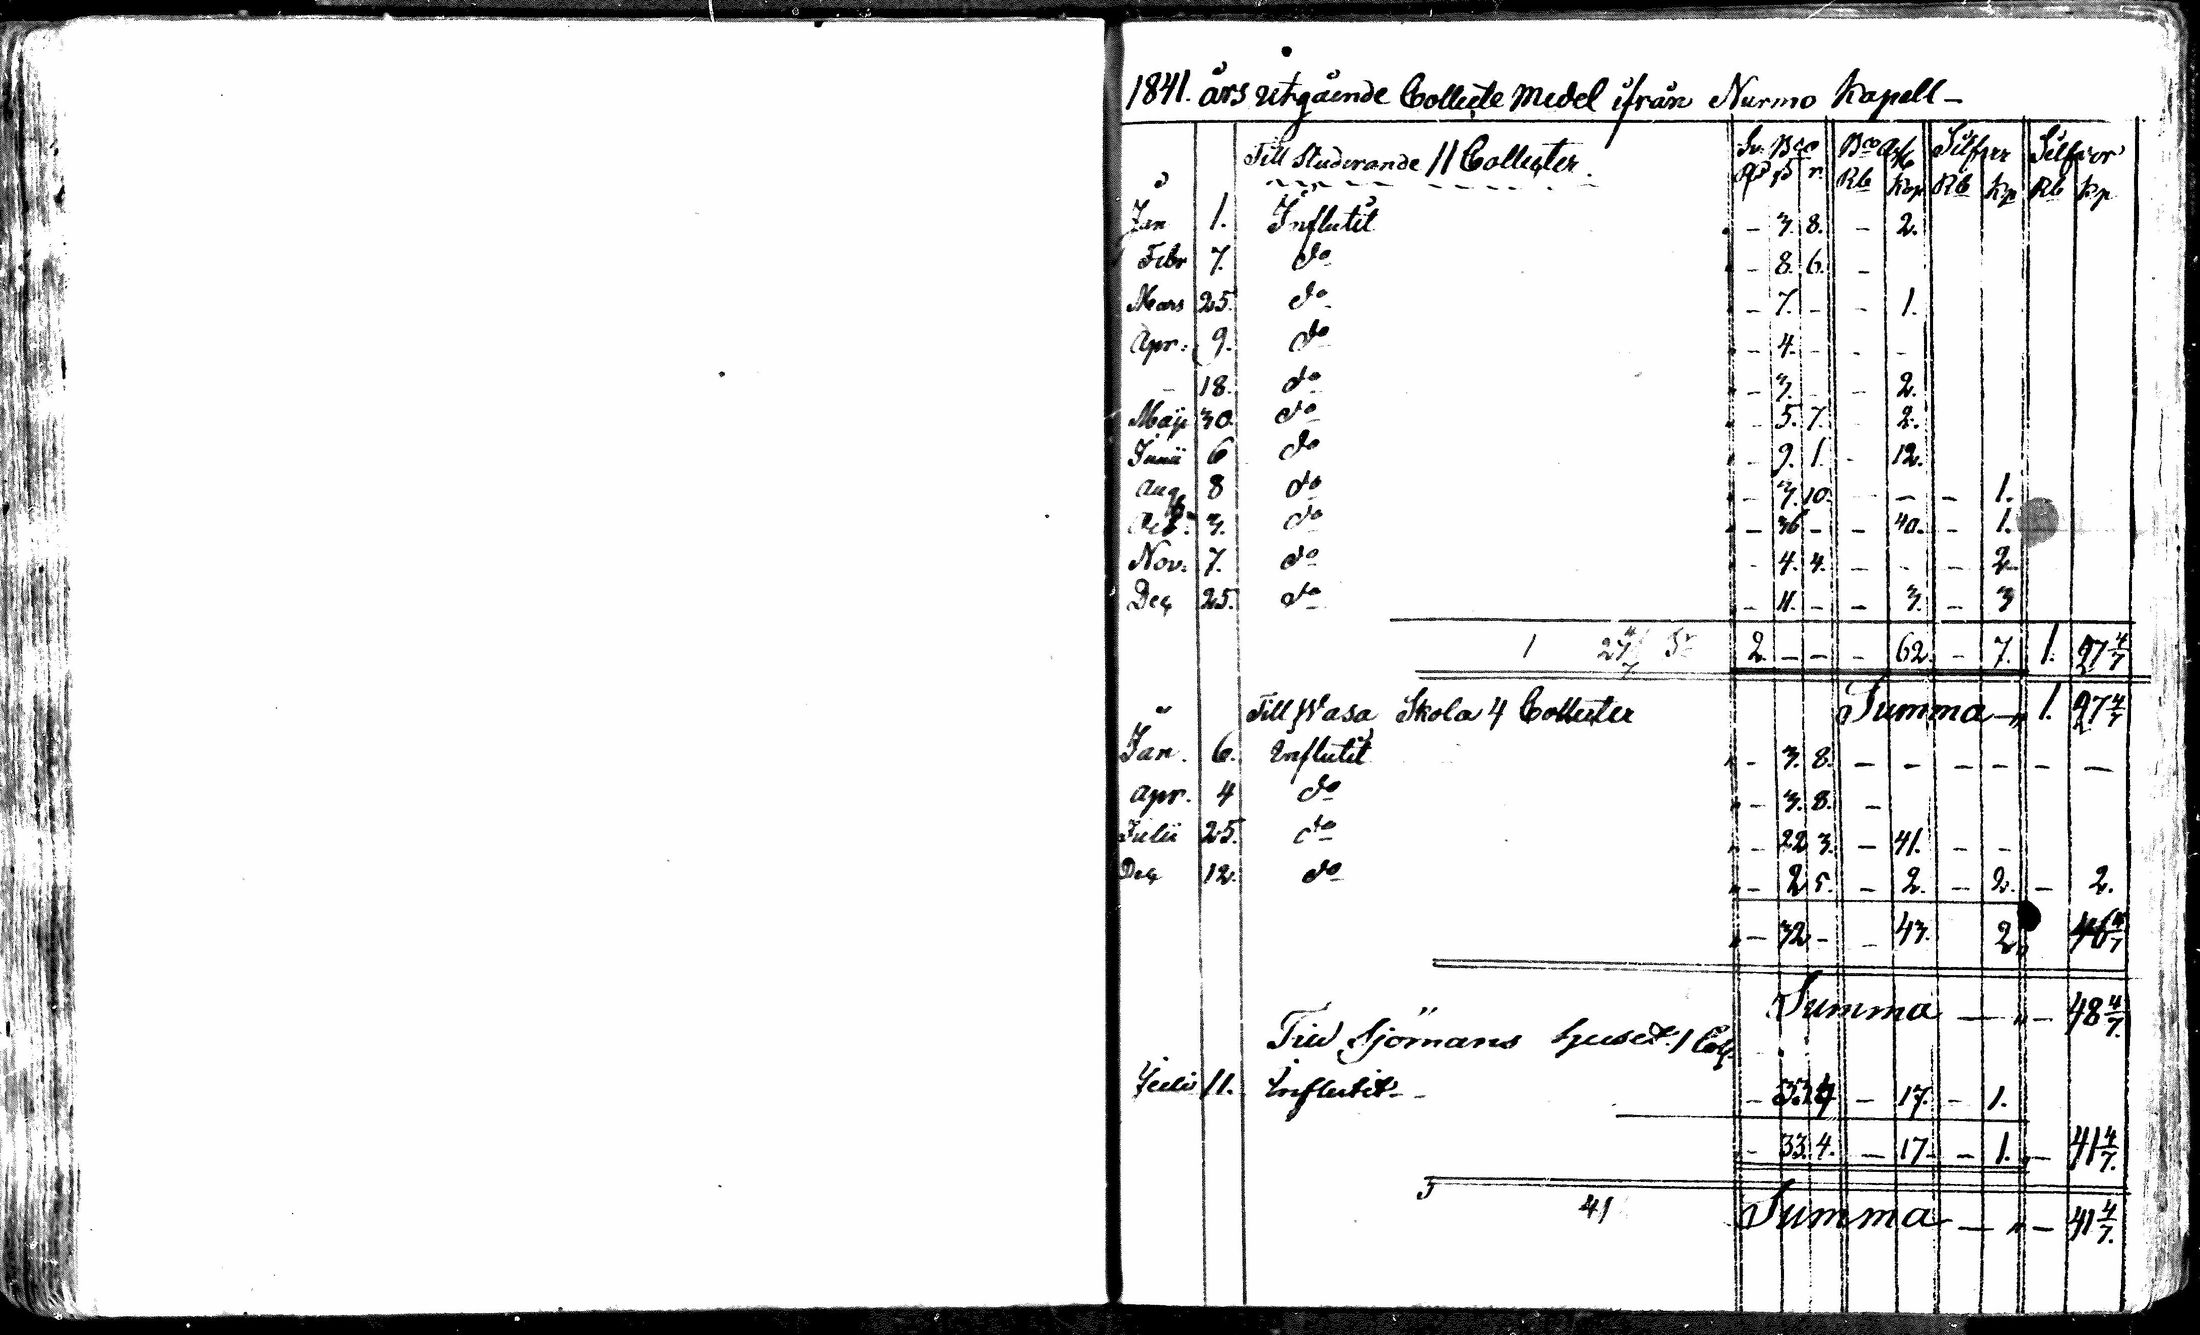 1841. års utgående Collecte Medel ifrån Nurmo Kapell –
Till Studerande 11 Collecter. Sv: Bco Bco Silfver Silfver
Rd ß r. Rb Kop Rb Kp Rb Kp
Jan 1. Influtit – 3. 8. – 2.
Febr 7. do – 8. 6. –
Mars 25. do – 7. – – 1.
Apr. 9. do – 4. – – –
– 18. do – 3. – – 2.
Maji 30. do – 5. 7. – 2.
Junii 6 do – 9. 1. – 12.
Aug 8 do – 3. 10. – – – 1.
Oct. 3. do – 36 – – 40. – 1.
Nov. 7. do – 4. 4. – – – 2.
Dec 25. do – 11. – – 3. – 3
2. – – – 62. – 7. 1. 27 4/7
Till Wasa Skola 4 Collecter Summa – „ 1. 27 4/7
Jan. 6. Influtit „ – 3. 8. – – – – – –
Apr. 4 do „ – 3. 8. –
Julii 25. do „ – 22 3. – 41. – –
Dec 12. do „ – 2 5. – 2. – 2. – 2.
„ – 32 – – 43. 2 „ 46 4/7
Summa – „ – 48 4/7.
Till Sjömans huset. 1 Coll.
Julii 11. Influtit – – 33. 4 – 17. – 1.
– 33. 4. – 17 – 1. „ – 41 4/7.
41 Summa – „ – 41 4/7.